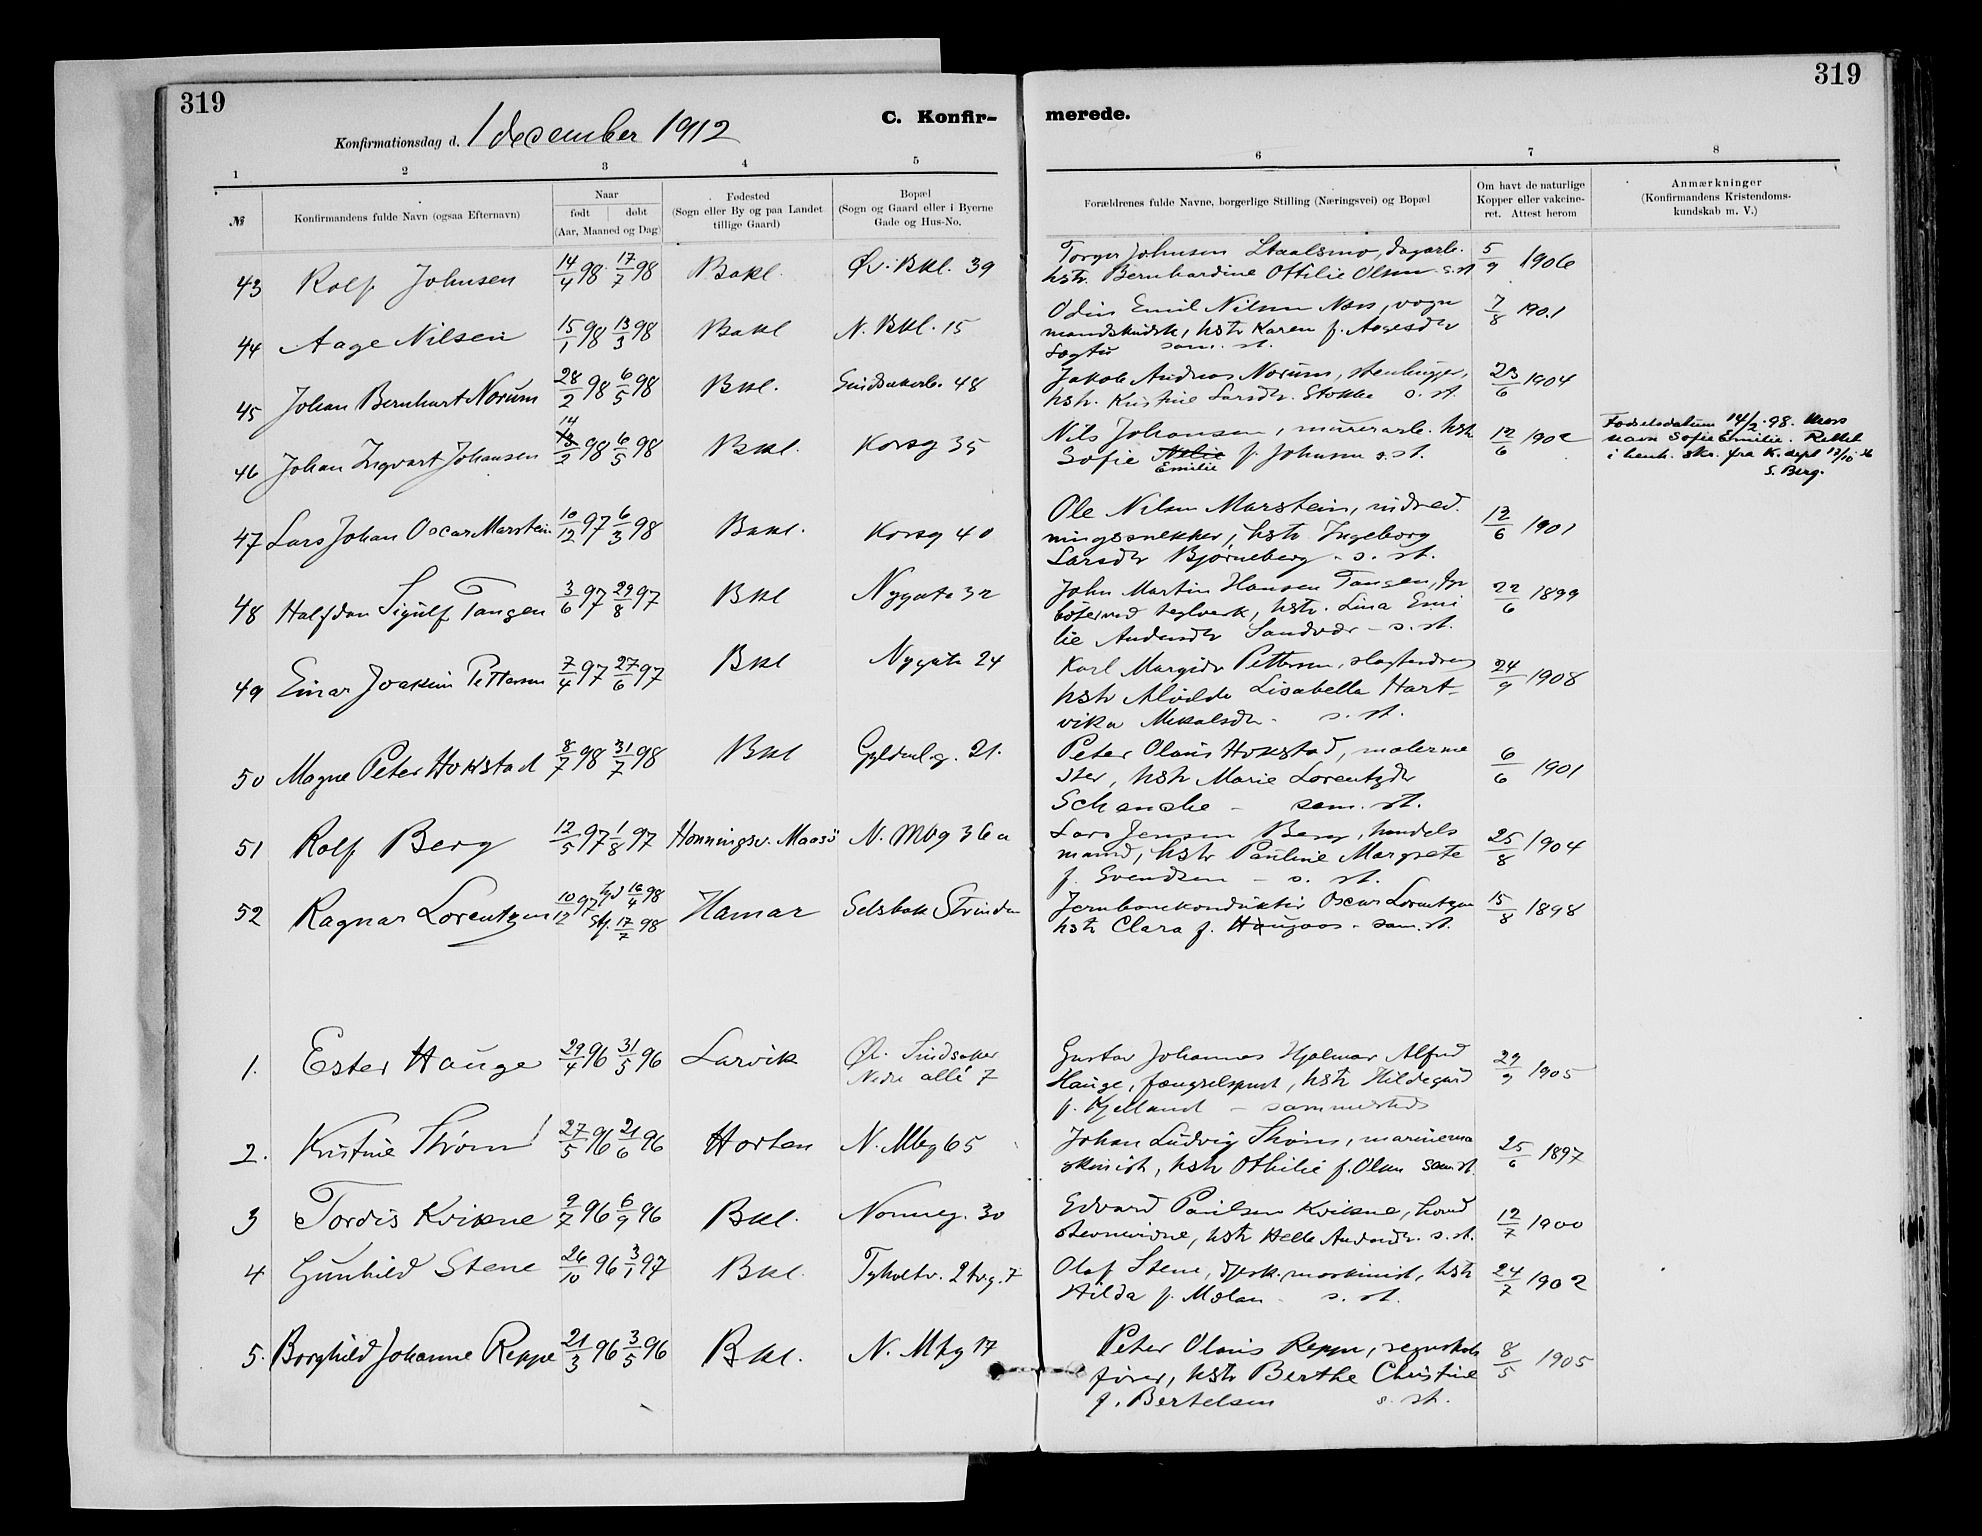 319
319
C. Konfir-
merede.
Konfirmationsdag d. 1 december 1912
1 2 3 4 5 6 7 8
№
Konfirmandens fulde Navn (ogsaa Efternavn)
Naar
født døbt
(Aar, Maaned og Dag)
Fødested
(Sogn eller By og paa Landet
tillige Gaard)
Bopæl
(Sogn og Gaard eller i Byerne
Gade og Hus-No.
Forældrenes fulde Navne, borgerlige Stilling (Næringsvei) og Bopæl
Om havt de naturlige
Kopper eller vakcine-
ret. Attest herom
Anmærkninger
(Konfirmandens Kristendoms-
kundskab m. V.)
43 Rolf Johnsen 14/4 98 17/7 98 Bakl. Øv. Bkl. 39
Torger Johnsen Staalsmo, dagarb. 5/9 1906
hstr. Bernhardine Ottilie Olsen s. st
44 Aage Nilsen 15/1 98 13/3 98 Bakl N. Bkl. 15
Odin Emil Nilsen Næss, vogn 7/8 1901
mandskudsk, hstr Karen f. Aagesdtr
sam. st.
45 Johan Bernhart Norum 28/2 98 6/5 98 Bkl. 48
Jakob Andreas Norum, stenhugger, 23/6 1904
hstr. Kristine Larsdtr. Stokke s. st.
46 Johan Ingvart Johansen 14 13/2 98 6/5 98 Bkl. Korsg 35
Nils Johansen, murerarb. hstr 12/6 1902
Sofie f. Johnsen s. st.
Emilie
Fødselsdatum 14/2 98. Mors
navn Sofie Emilie. Rettet
i henh. skr. fra K. dept
S. Berg.
47 Lars Johan Oscar Marstein 10/12 97 6/3 98 Bakl. Korsg 40
Ole Nilsen Marstein, indred 12/6 1901
ningssnekker, hstr Ingeborg
Larsdtr Bjørneberg - s. st.
48 Halfdan Sigulf Tangen 3/6 97 29/8 97 Bkl Nygata 32
John Martin Hansen Tangen, 22/6 1899
teglverk, hstr. Lina Emi
lie Andersdtr - s. st.
49 Einar Joakim Pettersen 7/4 97 27/6 97 Bkl Nygata 24
Karl Pettersen, 24/9 1908
hstr Alvilde Lisabella Hart-
vika Mikalsdtr - s. st.
50 Magne Peter Hokstad 8/7 98 31/7 98 Bkl Gyldenl. g. 21.
Peter Olaus Hokstad, malerme 6/6 1901
ster, hstr Marie Lorentzdtr
Schanche - sam. st.
51 Rolf Berg 12/5 97 1/8 97 Honningsv. Maasö N. Mbg 36 a
Lars Jensen Berg, handels 25/8 1904
mand, hstr Pauline Margrete
f. Svendsen - s. st.
52 Ragnar Lorentzen 10/12 97 hjd 16/4 98 Hamar Selsbak Strinden
Stf. 17/7 98
Jernbanekonduktør Oscar Lorentzen 15/8 1898
hstr Clara f. Haugaas - sam. st.
1. Ester Hauge 29/4 96 31/5 96 Larvik Øv. Sindsaker
Nedre allé 7
Gustav Johannes Hjalmar Alfred 29/9 1905
Hauge, fængselsprest, hstr Hildegard
f. Kjelland - sammesteds
2. Kristine Strøm 27/5 96 21/6 96 Horten N. Mbg 65
Johan Ludvig Strøm, marinema 25/6 1897
skinist, hstr Othilie f. Olsen sam st.
3 Tordis Kvikne 9/7 96 6/9 96 Bkl. Nonneg. 30
Edvard Paulsen Kvikne, 12/7 1900
hstr Helle Andersdtr. s. st.
4 Gunhild Stene 26/10 96 3/1 97 Bkl. Tyholtv. 2 tvg. 7
Olaf Stene, maskinist, hstr 24/7 1902
Hilda f. Mælan - s. st.
5. Borghild Johanne Reppe 21/3 96 3/5 96 Bkl. N. Mbg 17
Peter Olaus Reppe, regnskabs 8/5 1905
fører, hstr Berthe Christine
f. Bertelsen s. st.